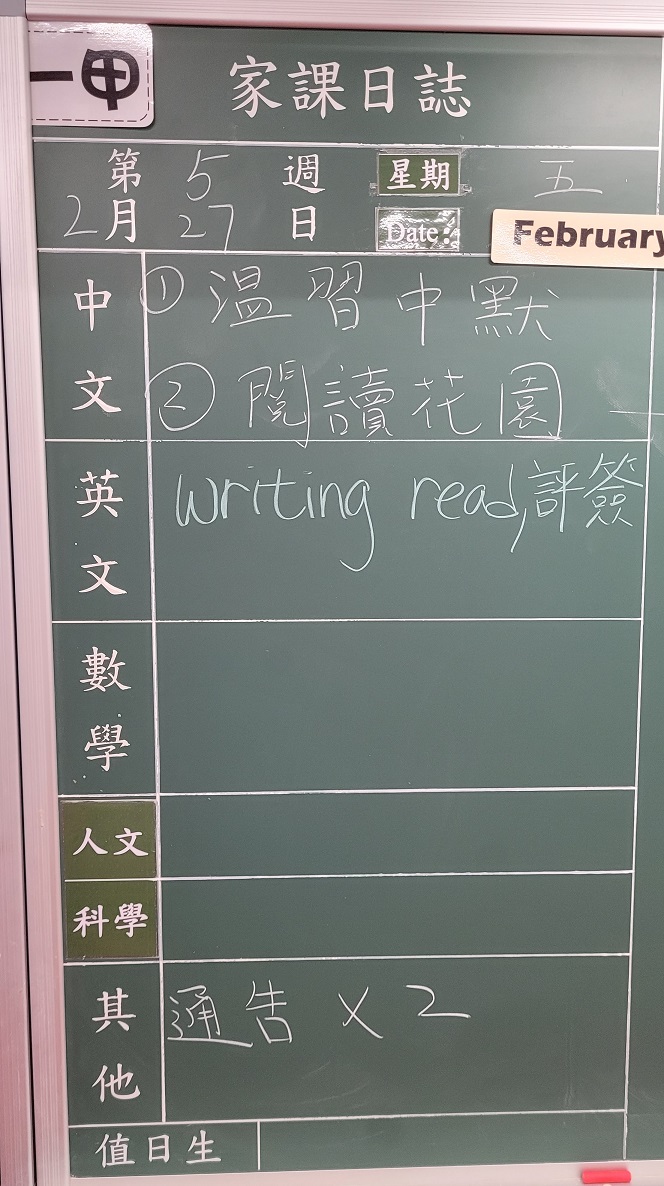 一甲
家課日誌
第 5 週 星期 五
2月 27 日 Date: February
中文 ① 温習中默
② 閱讀花園
英文 writing read, 評簽
數學
人文
科學
其他 通告 x 2
值日生